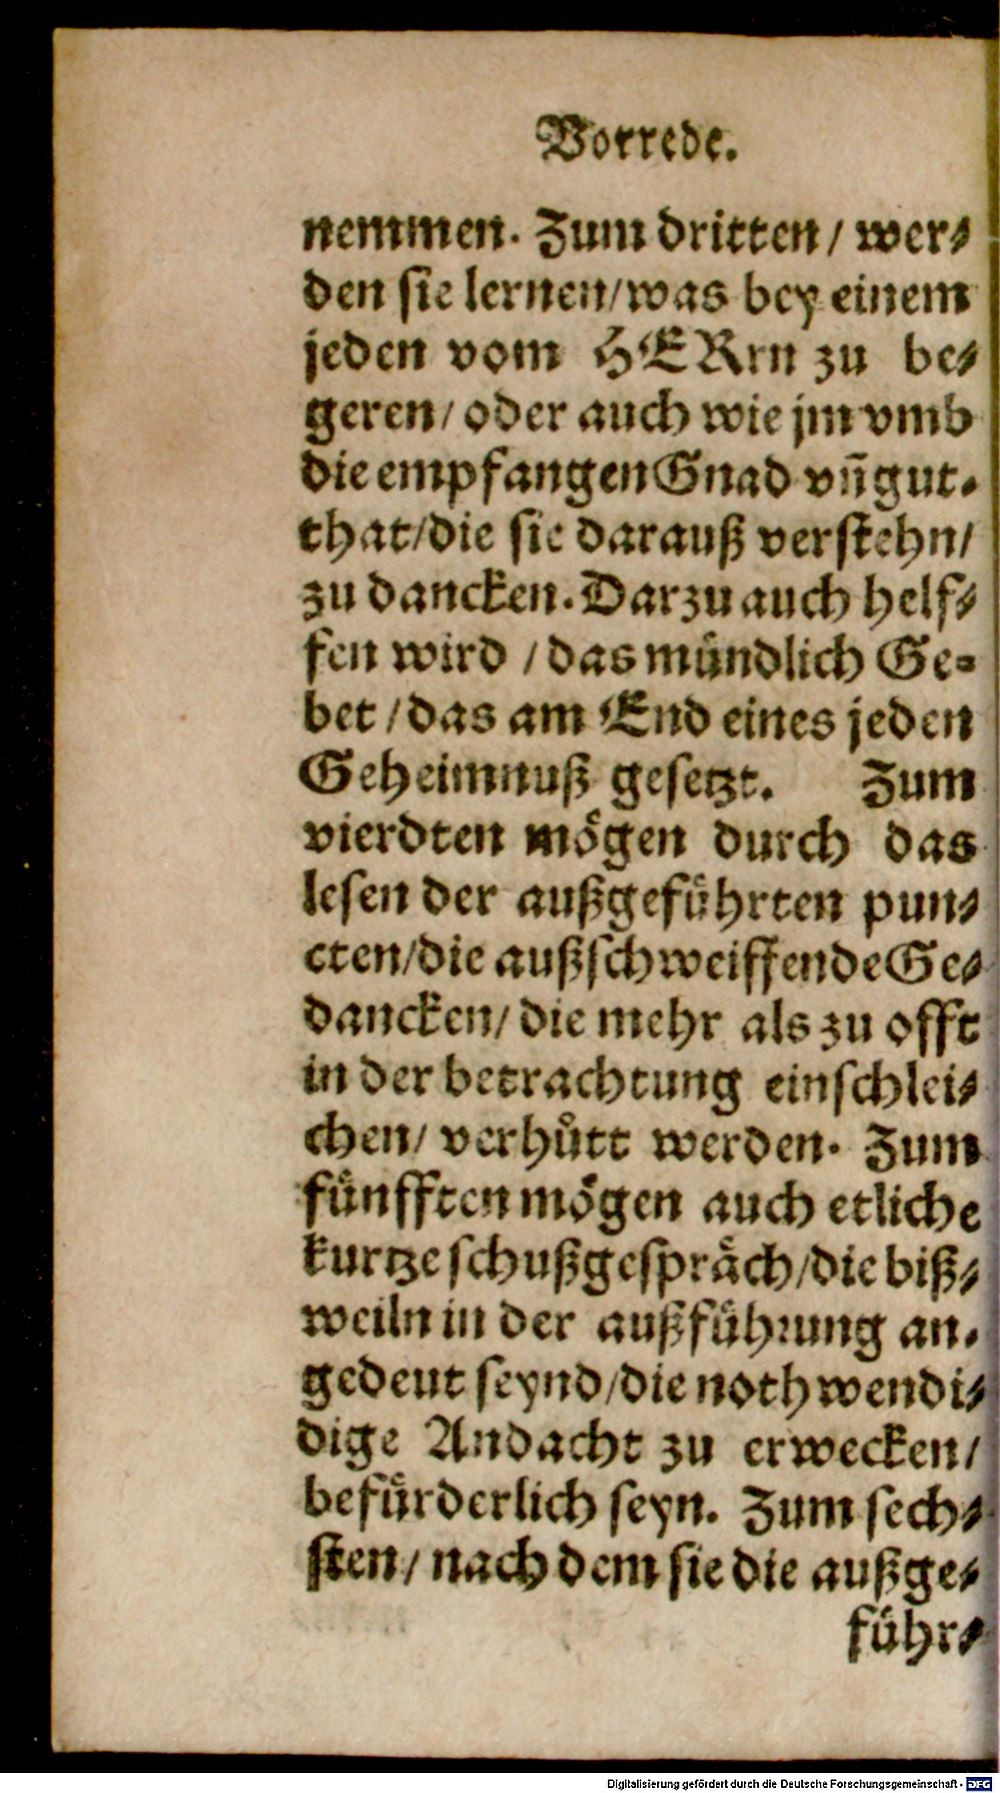 Vorrede.
nemmen. Zum dritten / wer⸗
den sie lernen/was bey einem
jeden vom HERrn zu be⸗
geren/ oder auch wie jm vmb
die empfangen Gnad vñ gut⸗
that/die sie darauß verstehn/
zu dancken. Darzu auch helf⸗
fen wird / das mündlich Ge⸗
bet / das am End eines jeden
Geheimnuß gesetzt. Zum
vierdten mögen durch das
lesen der außgeführten pun⸗
cten/die außschweiffende Ge⸗
dancken/ die mehr als zu offt
in der betrachtung einschlei⸗
chen/ verhůtt werden. Zum
fünfften mögen auch etliche
kurtze schußgespräch/die biß⸗
weiln in der außführung an⸗
gedeut seynd/die nothwendi⸗
dige Andacht zu erwecken/
befürderlich seyn. Zum sech⸗
sten/ nach dem sie die außge⸗
führ⸗
Digitalisierung gefördert durch die Deutsche Forschungsgemeinschaft - DFG